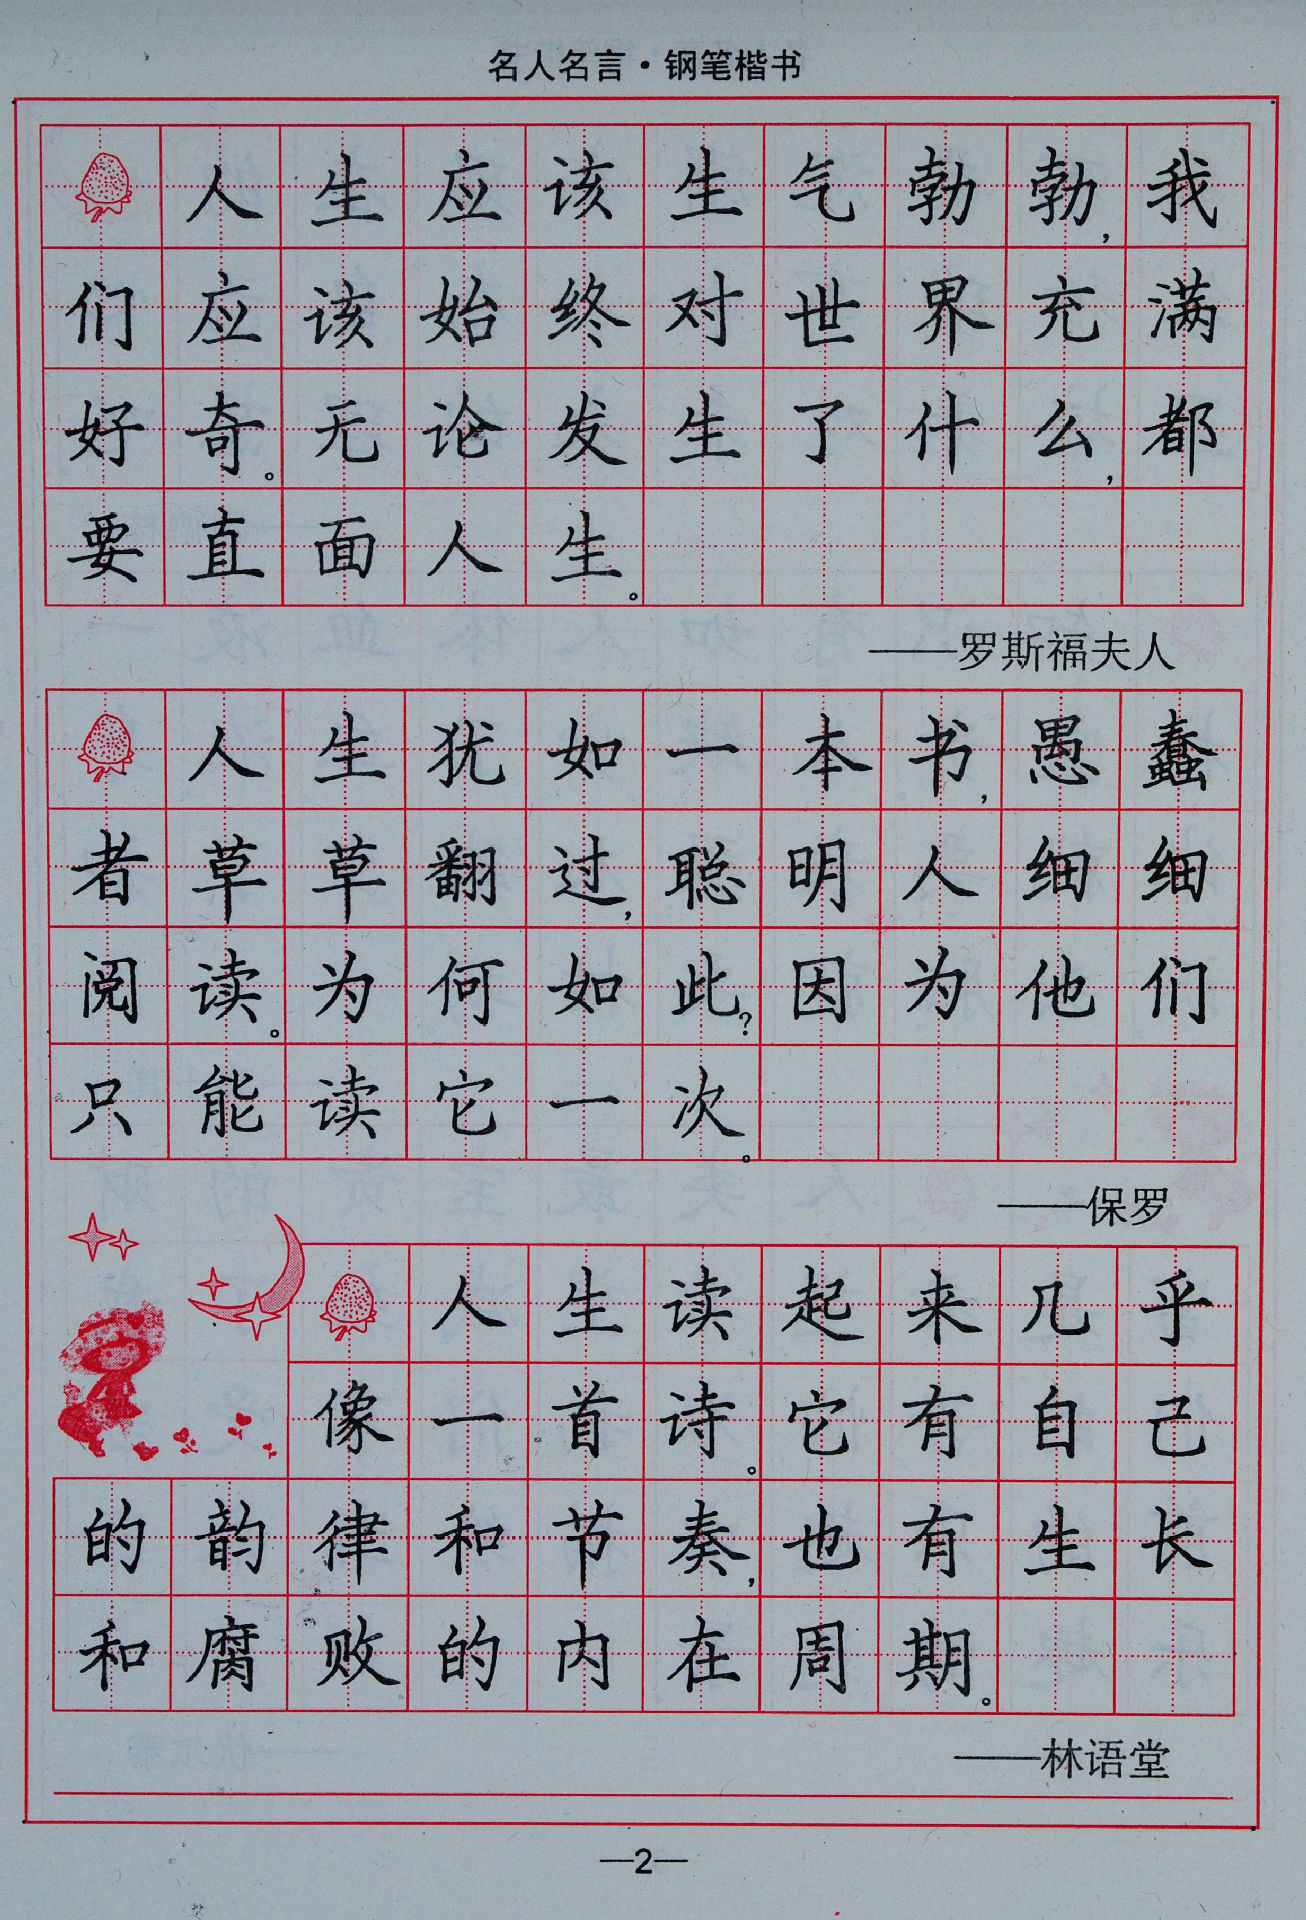 名人名言·钢笔楷书
人生应该生气勃勃,我
们应该始终对世界充满
好奇。无论发生了什么,都
要直面人生。
——罗斯福夫人
人生犹如一本书,愚蠢
者草草翻过,聪明人细细
阅读。为何如此?因为他们
只能读它一次。
——保罗
人生读起来几乎
像一首诗。它有自己
的韵律和节奏,也有生长
和腐败的内在周期。
——林语堂
—2—